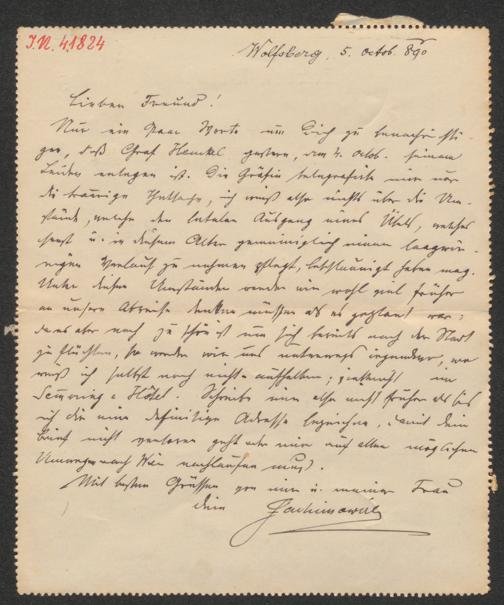 I.N. 41824
Wolfsberg, 5. octob. 890
Lieben Freund!
Nur ein Paar Worte um Dich zu benachrichti-
gen, daß Graf Henckel gestern, am 4. octob. seinem
Leiden erlegen ist. Die Gräfin telegrafirte mir nur
die traurige Thatsache, ich weiß also nichts über die Um-
stände, welche den letalen Ausgang eines Übels, welches
sonst u. in diesem Alter gemeiniglich einen langwie-
rigen Verlauf zu nehmen pflegt, beschleunigt haben mag.
Unter diesen Umständen werden wir wohl viel früher
an unsere Abreise denken müssen als es geplant war;
da es aber noch zu schön ist um sich bereits nach der Stadt
zu flüchten, so werden wir uns unterwegs irgendwo, wo
weiß ich selbst noch nicht aufhalten; vielleicht im
Semering-Hôtel. Schreibe mir also nicht früher als bis
ich dir eine definitive Adresse bezeichne, damit dein
Brief nicht verloren geht oder mir auf allen möglichen
Umwegen nach Wien nachlaufen muß.
Mit besten Grüssen von mir u. meiner Frau
dein